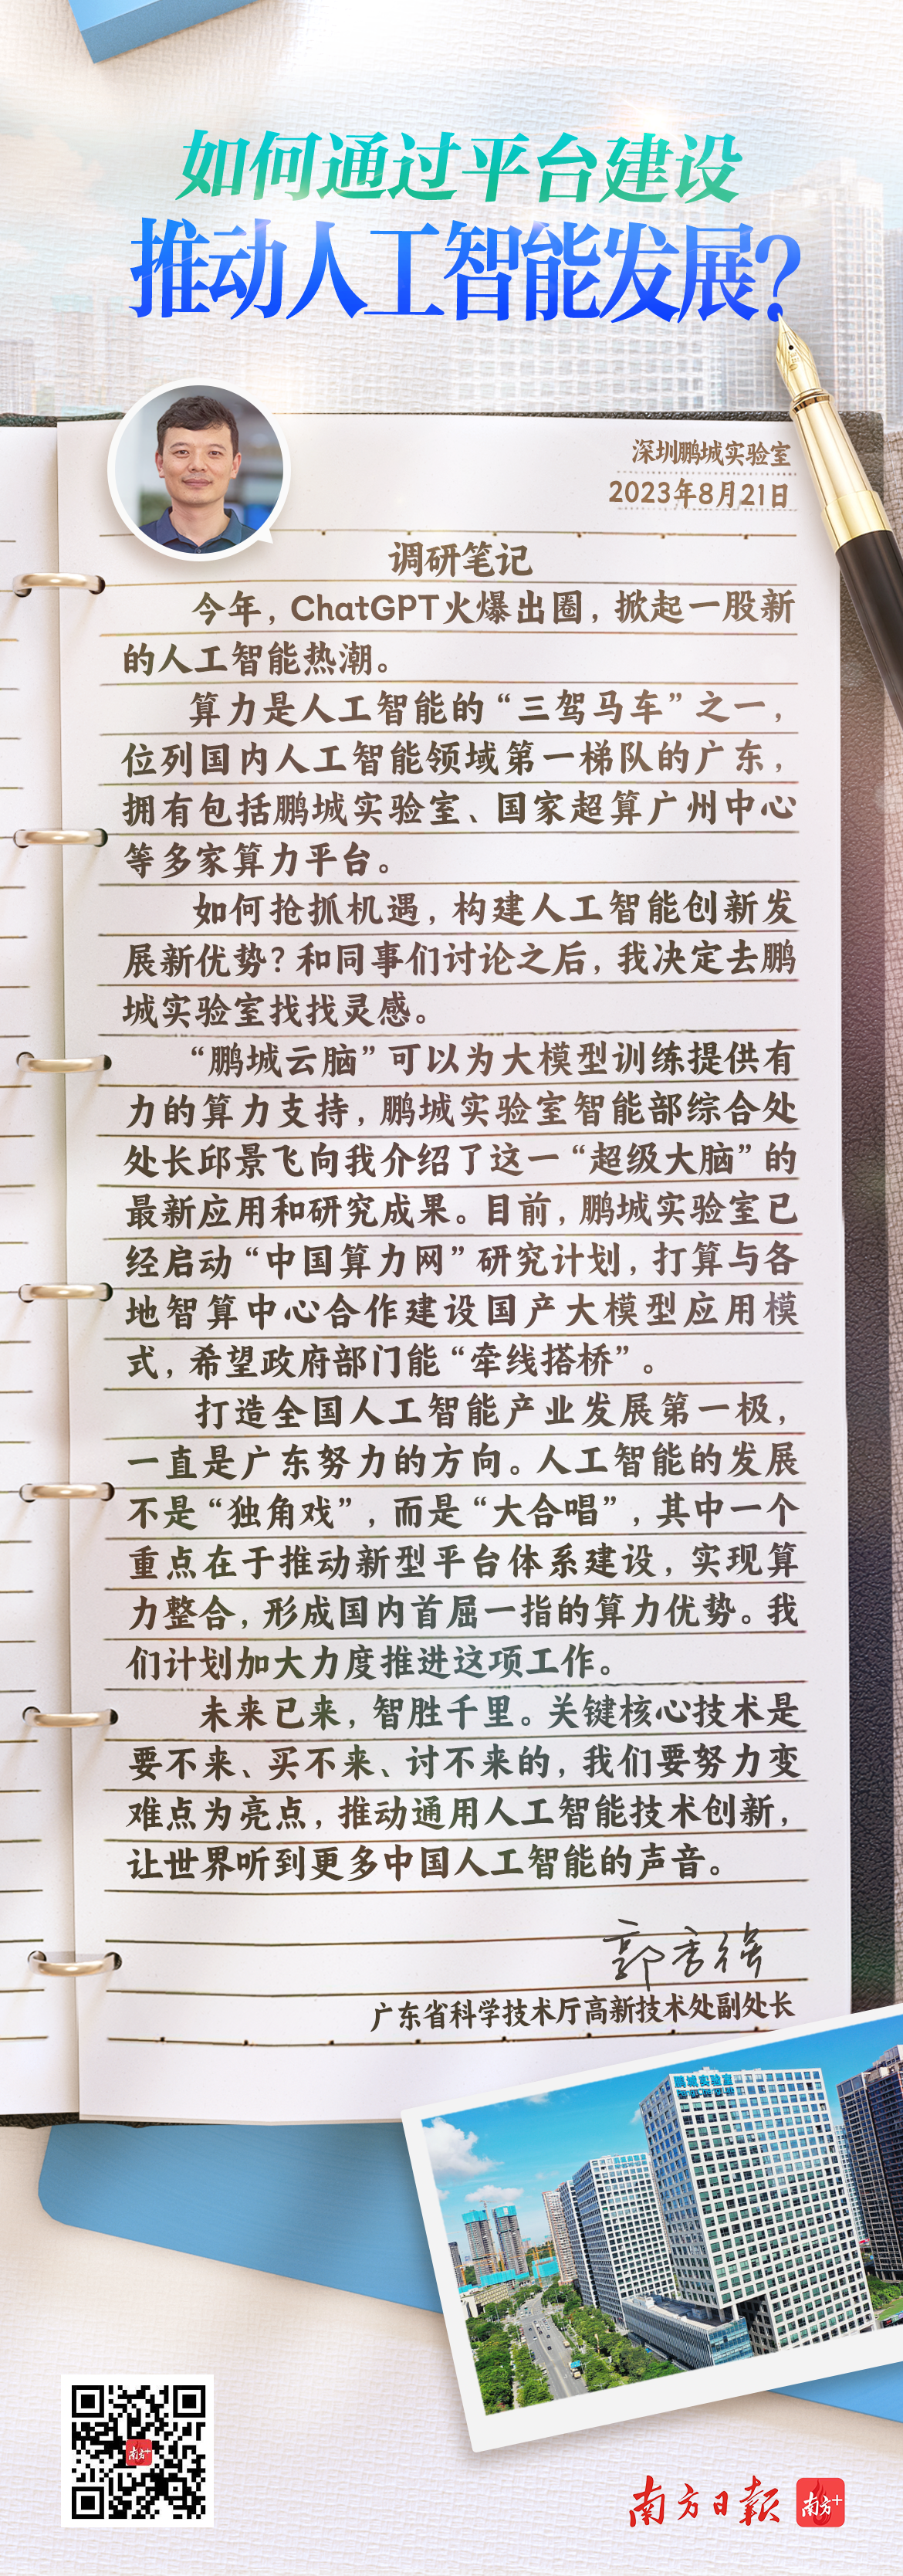 如何通过平台建设
推动人工智能发展?
深圳鹏城实验室
2023年8月21日
调研笔记
今年，ChatGPT火爆出圈，掀起一股新
的人工智能热潮。
算力是人工智能的“三驾马车”之一，
位列国内人工智能领域第一梯队的广东，
拥有包括鹏城实验室、国家超算广州中心
等多家算力平台。
如何抢抓机遇，构建人工智能创新发
展新优势？和同事们讨论之后，我决定去鹏
城实验室找找灵感。
“鹏城云脑”可以为大模型训练提供有
力的算力支持，鹏城实验室智能部综合处
处长邱景飞向我介绍了这一“超级大脑”的
最新应用和研究成果。目前，鹏城实验室已
经启动“中国算力网”研究计划，打算与各
地智算中心合作建设国产大模型应用模
式，希望政府部门能“牵线搭桥”。
打造全国人工智能产业发展第一极，
一直是广东努力的方向。人工智能的发展
不是“独角戏”，而是“大合唱”，其中一个
重点在于推动新型平台体系建设，实现算
力整合，形成国内首屈一指的算力优势。我
们计划加大力度推进这项工作。
未来已来，智胜千里。关键核心技术是
要不来、买不来、讨不来的，我们要努力变
难点为亮点，推动通用人工智能技术创新，
让世界听到更多中国人工智能的声音。
郭秀强
广东省科学技术厅高新技术处副处长
鹏城实验室
南方+
南方日报
南方+